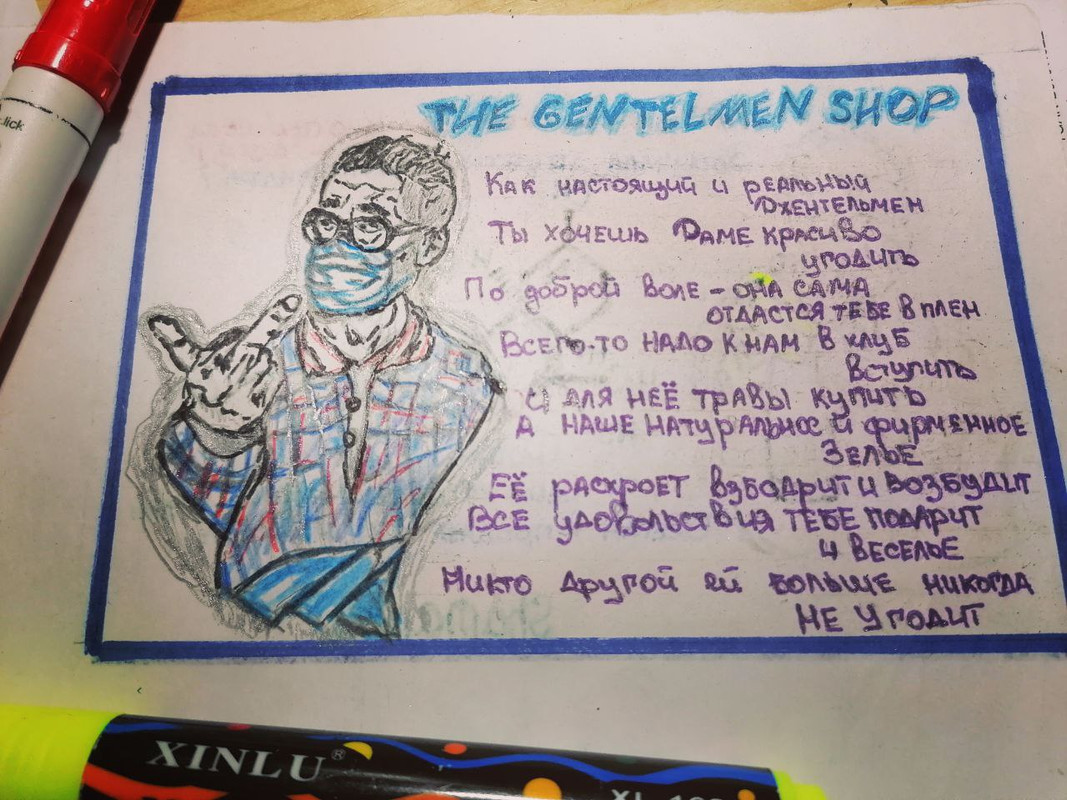 lick
THE GENTELMEN SHOP
Как настоящий и реальный
Джентельмен
Ты хочешь Даме красиво
угодить
По доброй воле - она сама
отдастся тебе в плен
Всего-то надо к нам в клуб
вступить
И для неё травы купить
А наше натуральное и фирменное
зелье
Её раскроет взбодрит и возбудит
Все удовольствия тебе подарит
и веселье
Никто другой ей больше никогда
не угодит
XINLU®